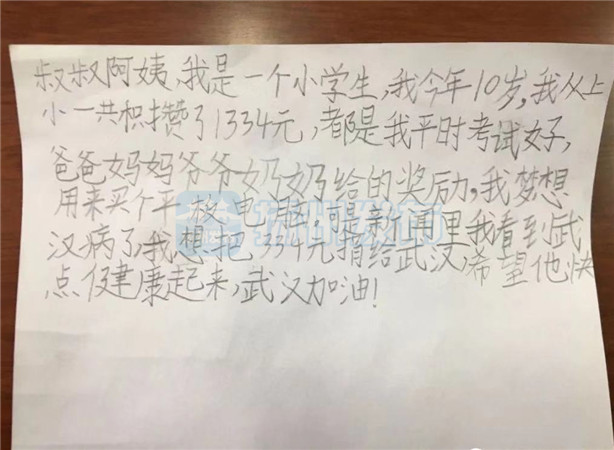 叔叔阿姨,我是一个小学生,我今年10岁,我从上
小一共积攒了1334元,都是我平时考试好,
爸爸妈妈爷爷奶奶给的奖励,我梦想
用来买个平板电脑,可是新闻里我看到武
汉病了,我想把1334元捐给武汉,希望他快
点健康起来,武汉加油!